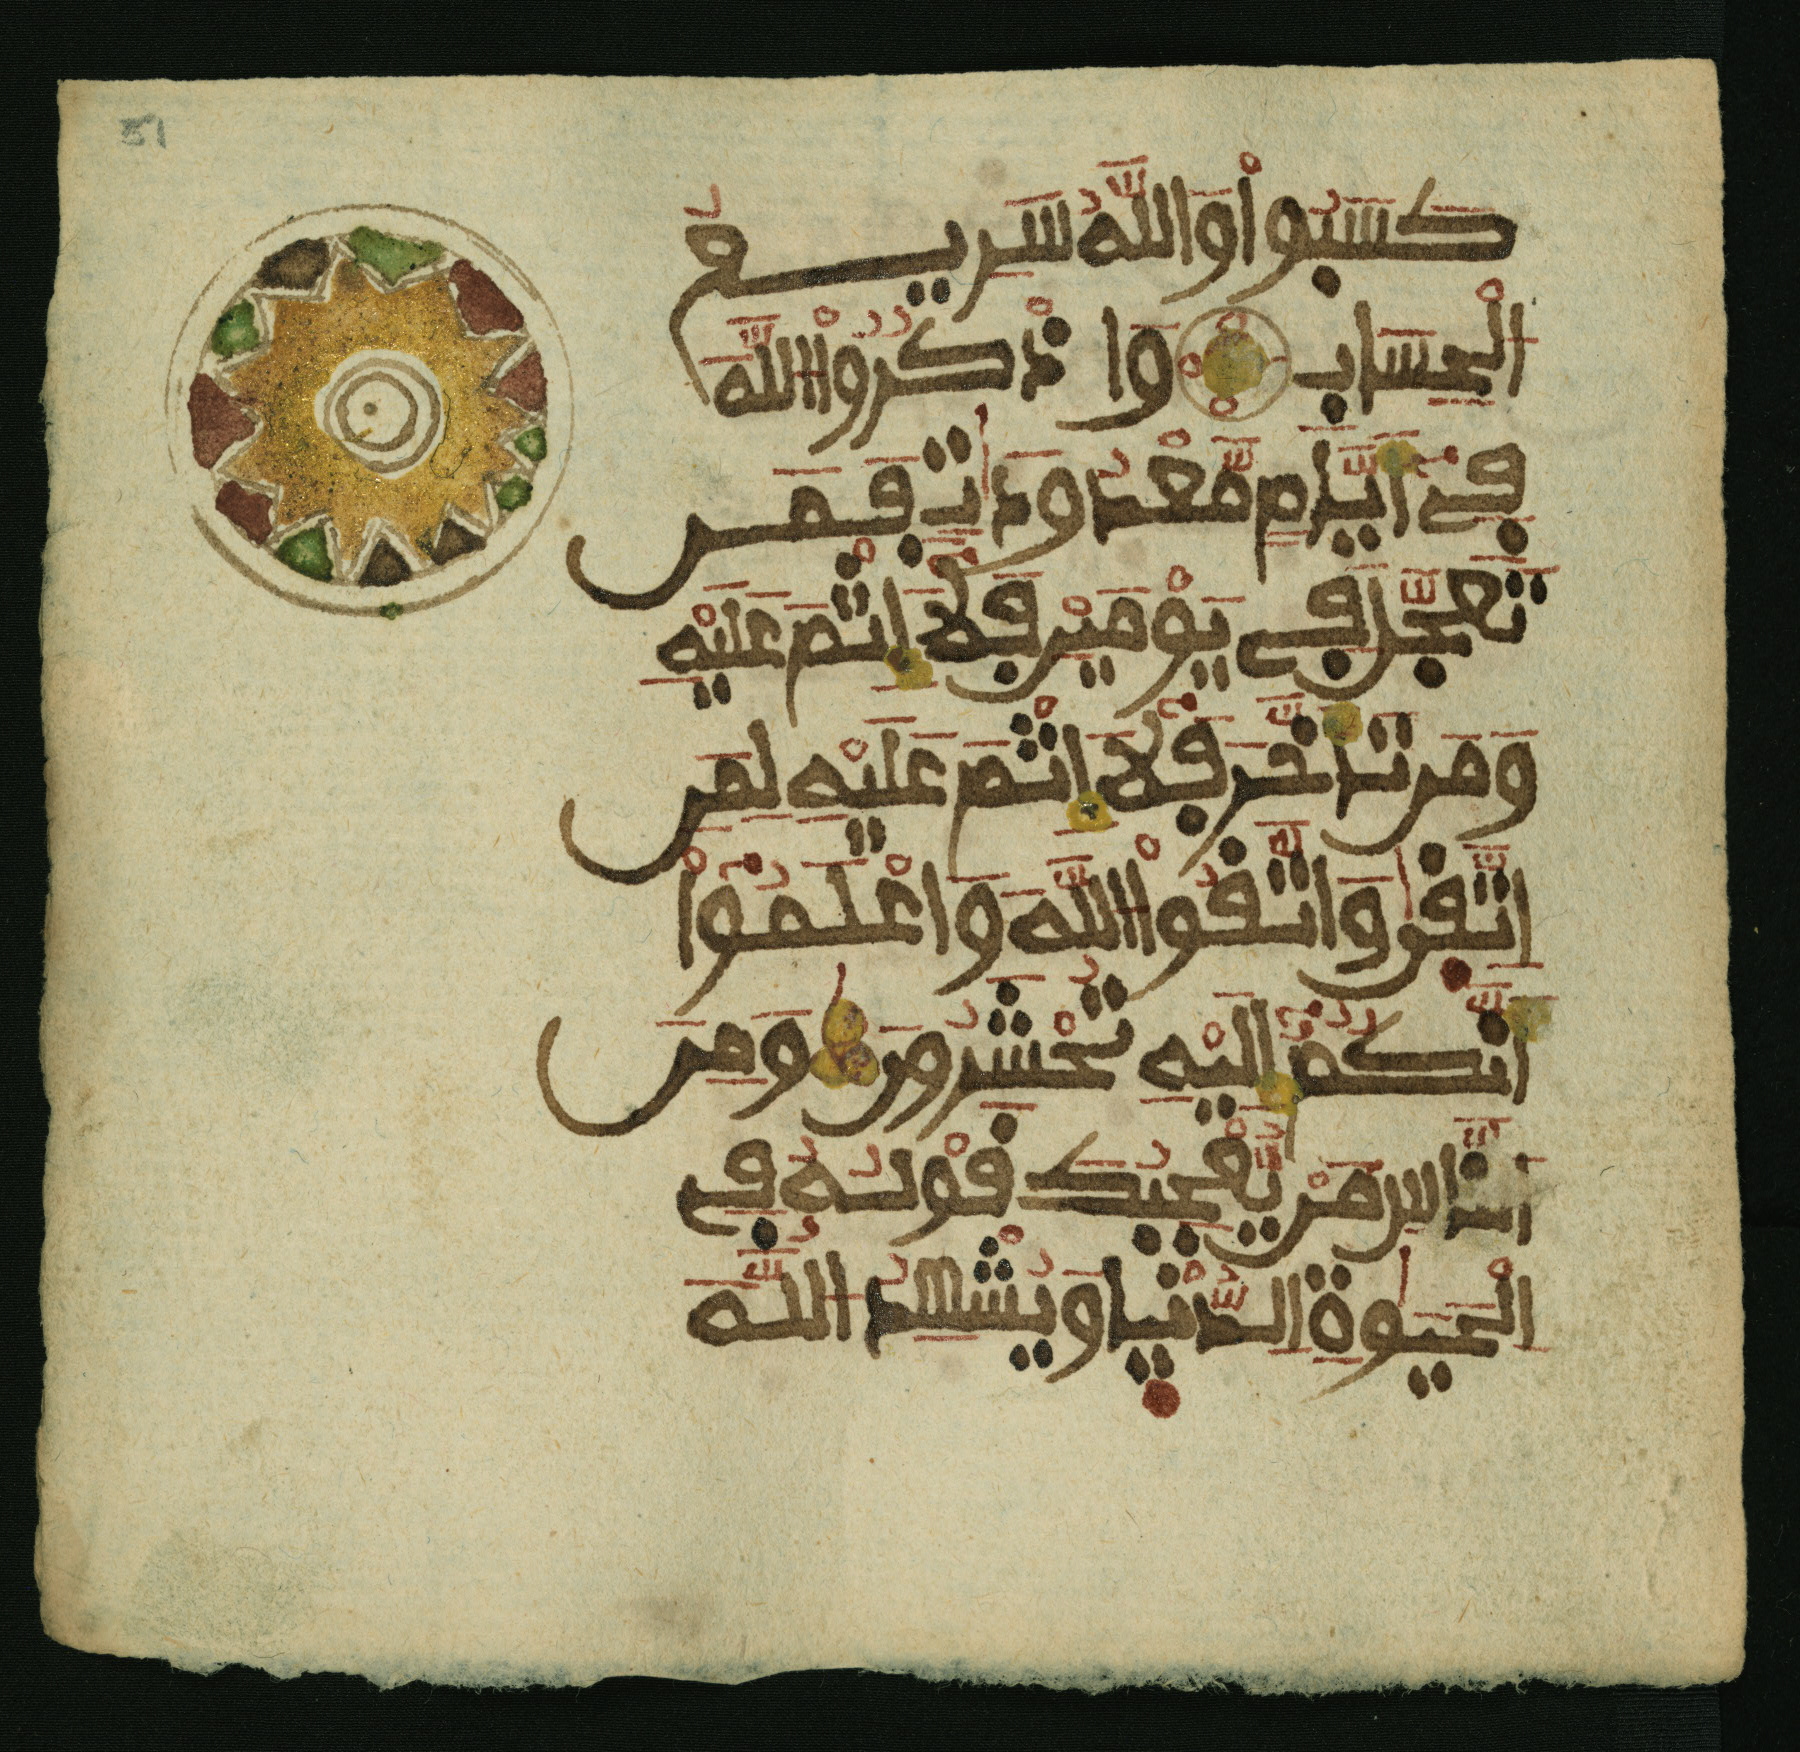 51
كَسَبُواْ وَاللَّهُ سَرِيعُ
الْحِسَابِ وَاذْكُرُواْ اللَّهَ
فِي أَيَّامٍ مَّعْدُودَاتٍ فَمَن
تَعَجَّلَ فِي يَوْمَيْنِ فَلَا إِثْمَ عَلَيْهِ
وَمَن تَأَخَّرَ فَلَا إِثْمَ عَلَيْهِ لِمَنِ
اتَّقَىٰ وَاتَّقُواْ اللَّهَ وَاعْلَمُواْ
أَنَّكُمْ إِلَيْهِ تُحْشَرُونَ وَمِنَ
النَّاسِ مَنْ يُّعْجِبُكَ قَوْلُهُ فِي
الْحَيَوٰةِ الدُّنْيَا وَيُشْهِدُ اللَّهَ